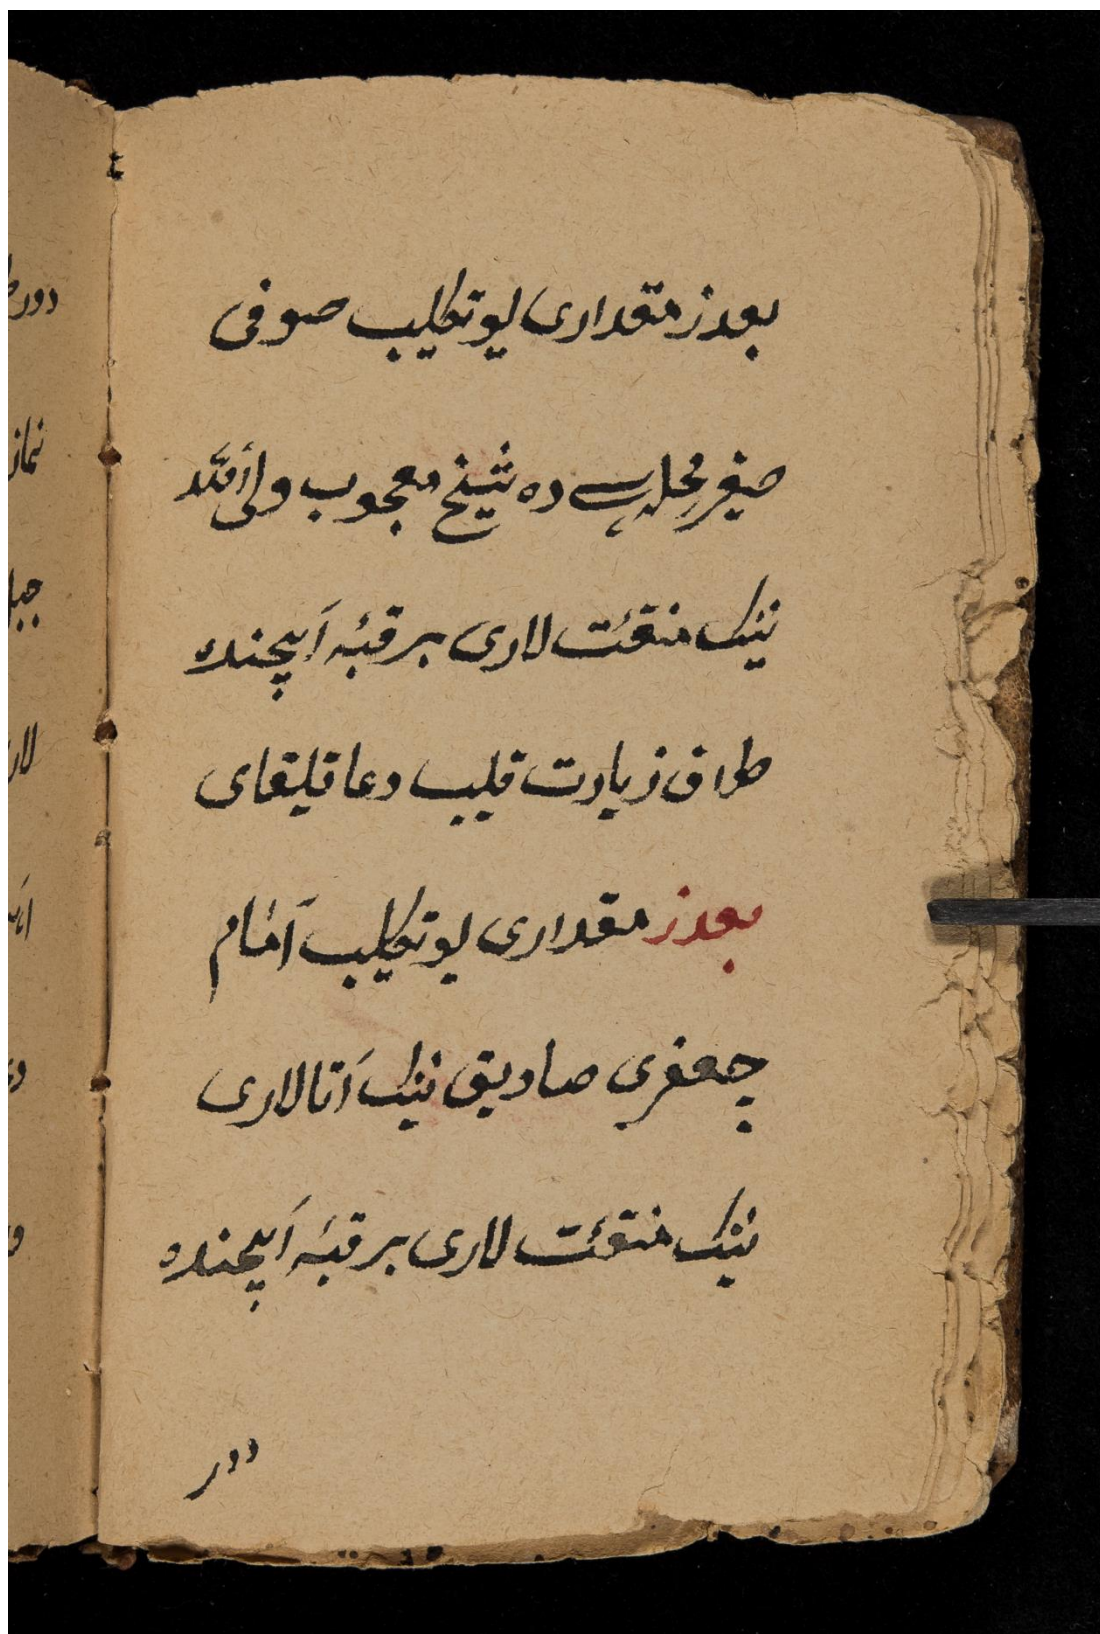 بعدز مقداری لیوتکلیب صوفی
صیغر محلہ سے ده شیخ معجوب ولی اللّٰه
نینک منقئت لاری بر قبّه اَیچنده
طواف زیارت قلیب دعا قیلیقای
بعدز مقداری لیوتکلیب اَمام
جعفری صادیق نینک اَتا لاری
نینک منقئت لاری بر قبّه اَیچنده
دور